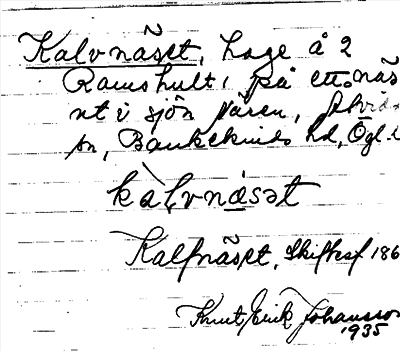 Kalvnäset, hage å 2
Ramshult, på ett näs
ut i sjön Våren, Åtvid
sn, Bankekinds hd, Ögl
kàlvnäsət
Kalfnäset, Skifteskf 186
Knut Erik Johansson
1935